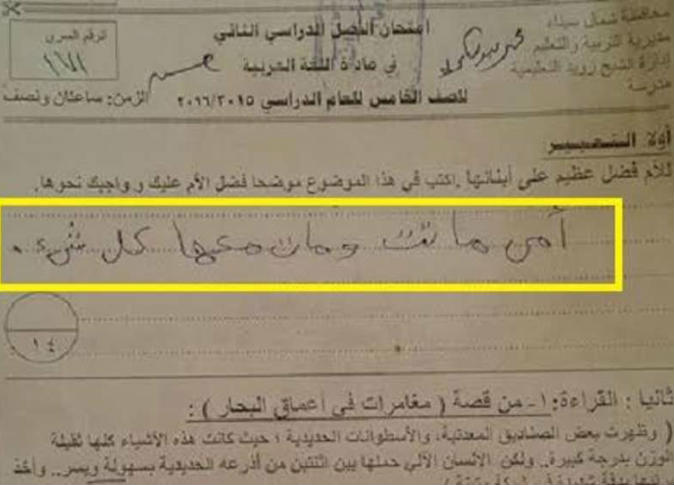 محافظة شمال سيناء
مديرية التربية والتعليم
إدارة الشيخ زويد التعليمية
مدرسة
امتحان الفصل الدراسي الثاني
في مادة اللغة العربية
للصف الخامس للعام الدراسي ٢٠١٦/٢٠١٥
الرقم السري
١٧١
الزمن: ساعتان ونصف
أولا: التعبير
للأم فضل عظيم على أبنائها .اكتب في هذا الموضوع موضحا فضل الأم عليك و واجبك نحوها.
أمى ماتت ومات معها كل شىء .
١٤
ثانيا : القراءة: ١- من قصة ( مغامرات في أعماق البحار ) :
( وظهرت بعض الصناديق المعدنية، والأسطوانات الحديدية ؛ حيث كانت هذه الأشياء كلها ثقيلة
الوزن بدرجة كبيرة.. ولكن الإنسان الآلي حملها بين اثنتين من أذرعه الحديدية بسهولة ويسر.. وأخذ